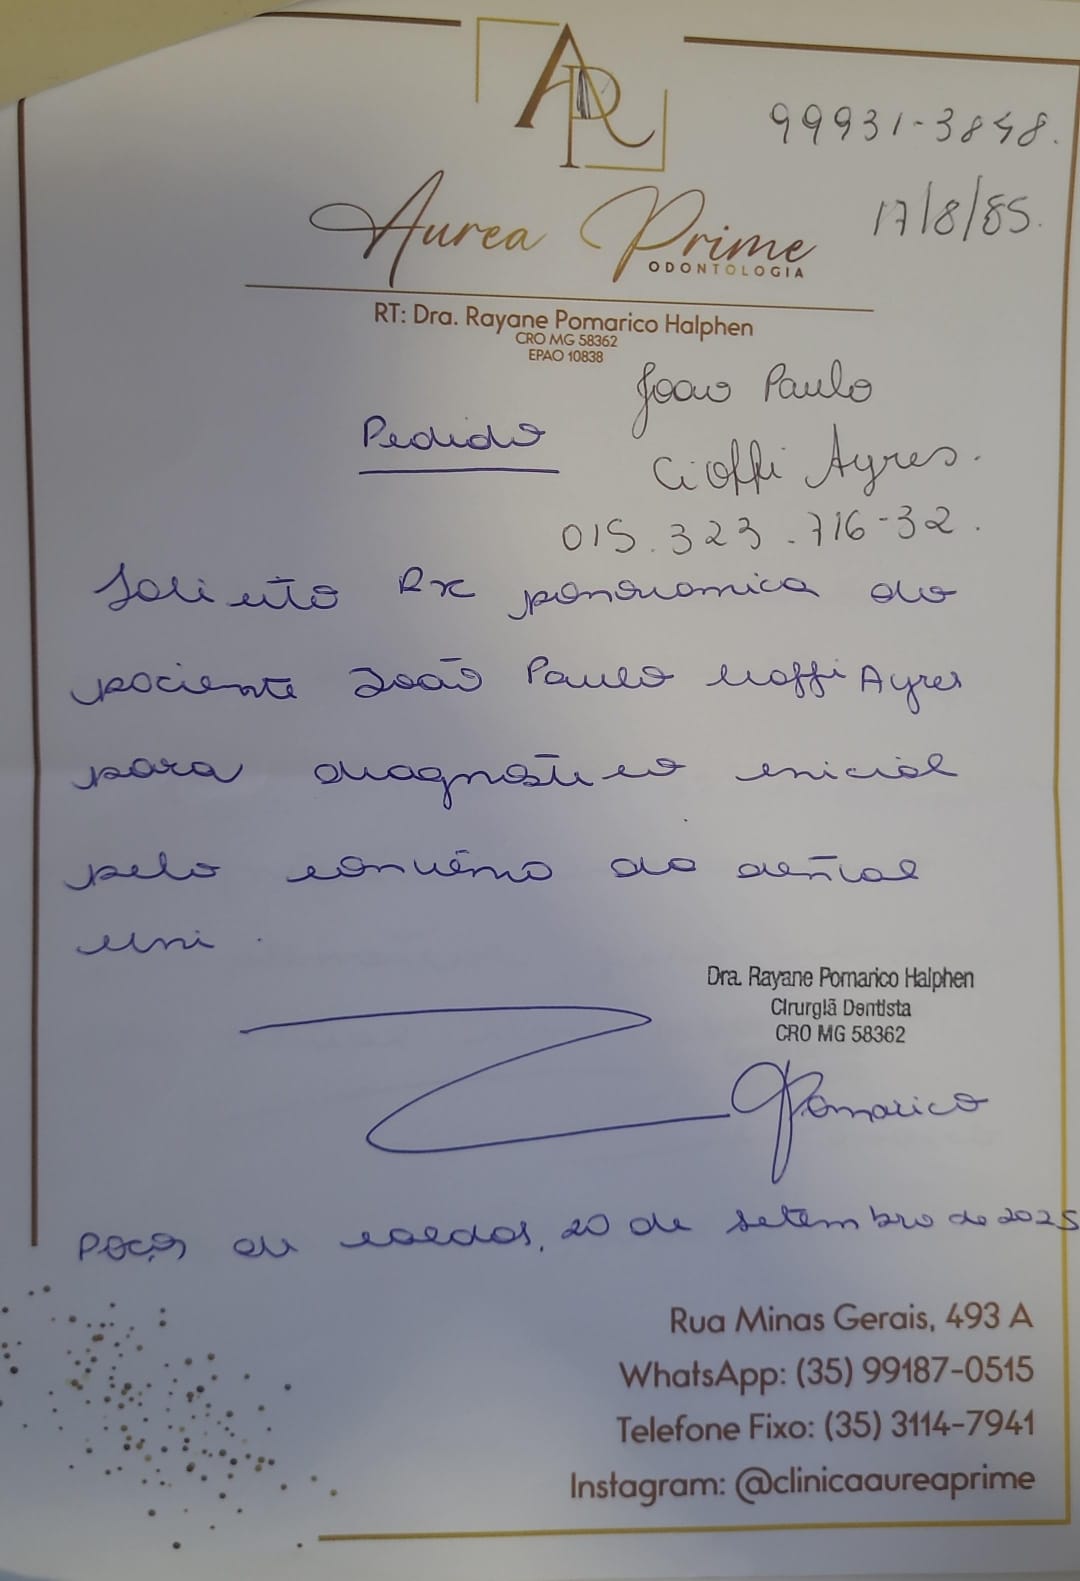 AR
99931-3848.
17/8/85.
Aurea Prime
ODONTOLOGIA
RT: Dra. Rayane Pomarico Halphen
CRO MG 58362
EPAO 10838
Joao Paulo
Pedido
Cioffi Ayres.
015.323.716-32.
Solicito Rx panoramica do
paciente João Paulo Cioffi Ayres
para diagnóstico inicial
pelo convênio da dental
uni.
Dra. Rayane Pomarico Halphen
Cirurgiã Dentista
CRO MG 58362
RPomarico
Poços de caldas, 20 de setembro de 2025
Rua Minas Gerais, 493 A
WhatsApp: (35) 99187-0515
Telefone Fixo: (35) 3114-7941
Instagram: @clinicaaureaprime